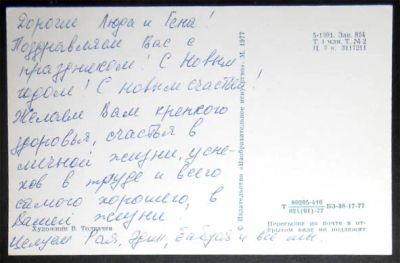 Дорогие Люда и Гена!
Поздравляем Вас с
праздником! С Новым
годом! С новым счастьем!
Желаем Вам крепкого
здоровья, счастья в
личной жизни, успе-
хов в труде и всего
самого хорошего, в
Вашей жизни.
Целуем Рая, Эдик, бабуся и все мы.
Художник В. Толкачев
Издательство «Изобразительное искусство». М. 1977
5-1991. Зак. 854
Т 1 млн. Т. № 2
Ц. 3 к. 3117211
Т 80205-410 БЗ-38-17-77
024(01)-77
Пересылке по почте в от-
крытом виде не подлежит